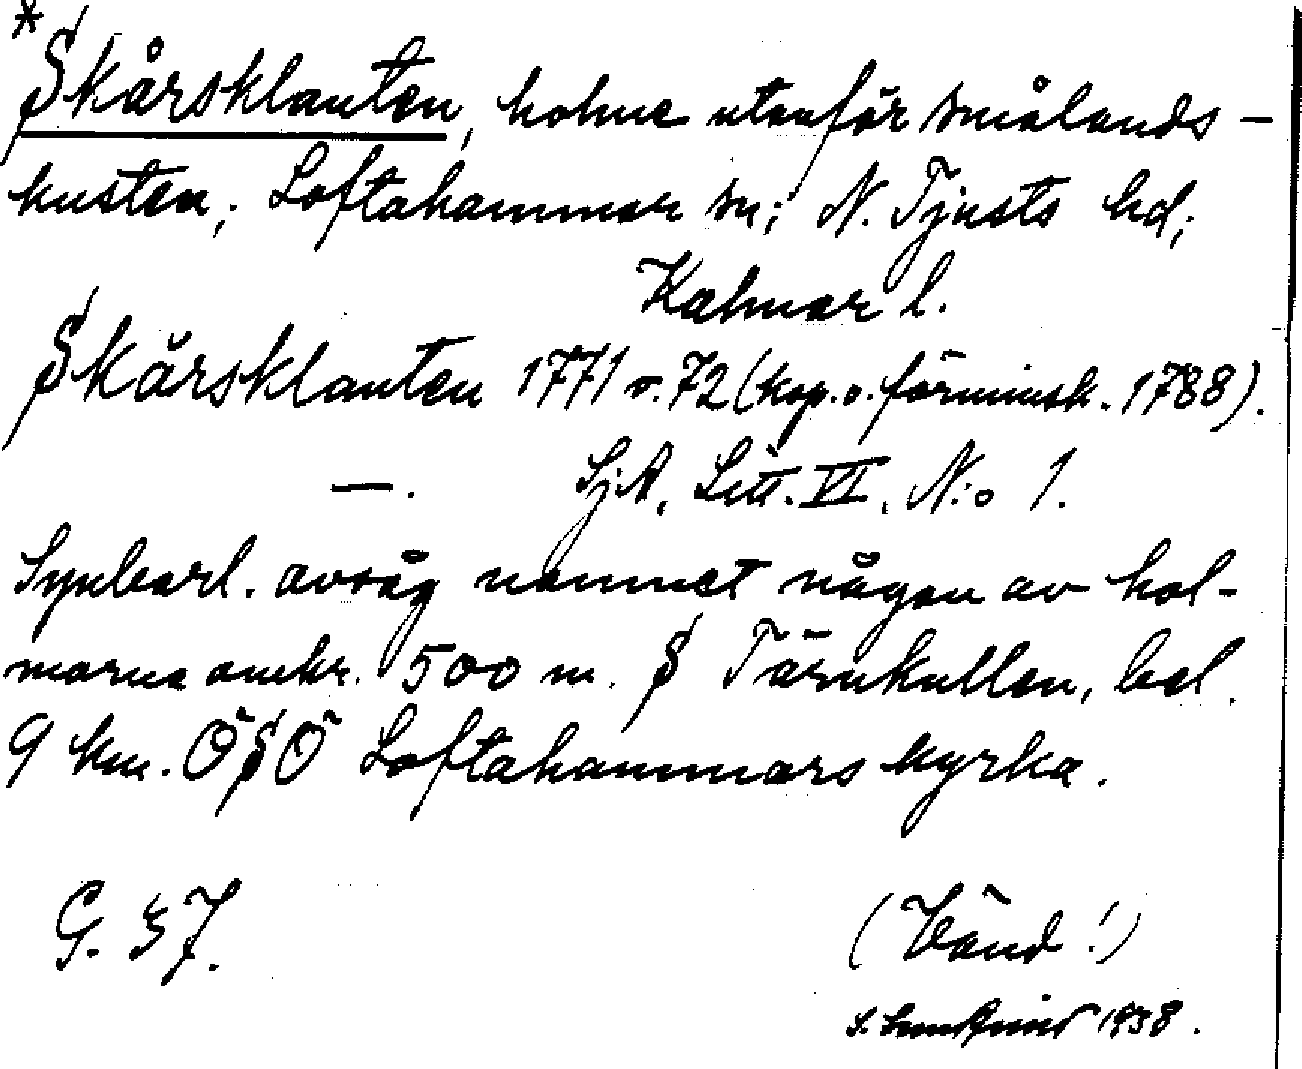 *Skårsklanten, holme utanför smålands-
kusten; Loftahammar sn; N. Tjusts hd;
Kalmar l.
Skårsklanten 1771 o. 72 (kop. o. förminsk. 1788).
—. SjA, Litt. VI, N:o 1.
Synbarl. avsåg namnet någon av hol-
marna omkr. 500 m. S Tärnkullen, bel.
9 km. ÖSÖ Loftahammars kyrka.
G. 37.
(Vänd!)
1938.